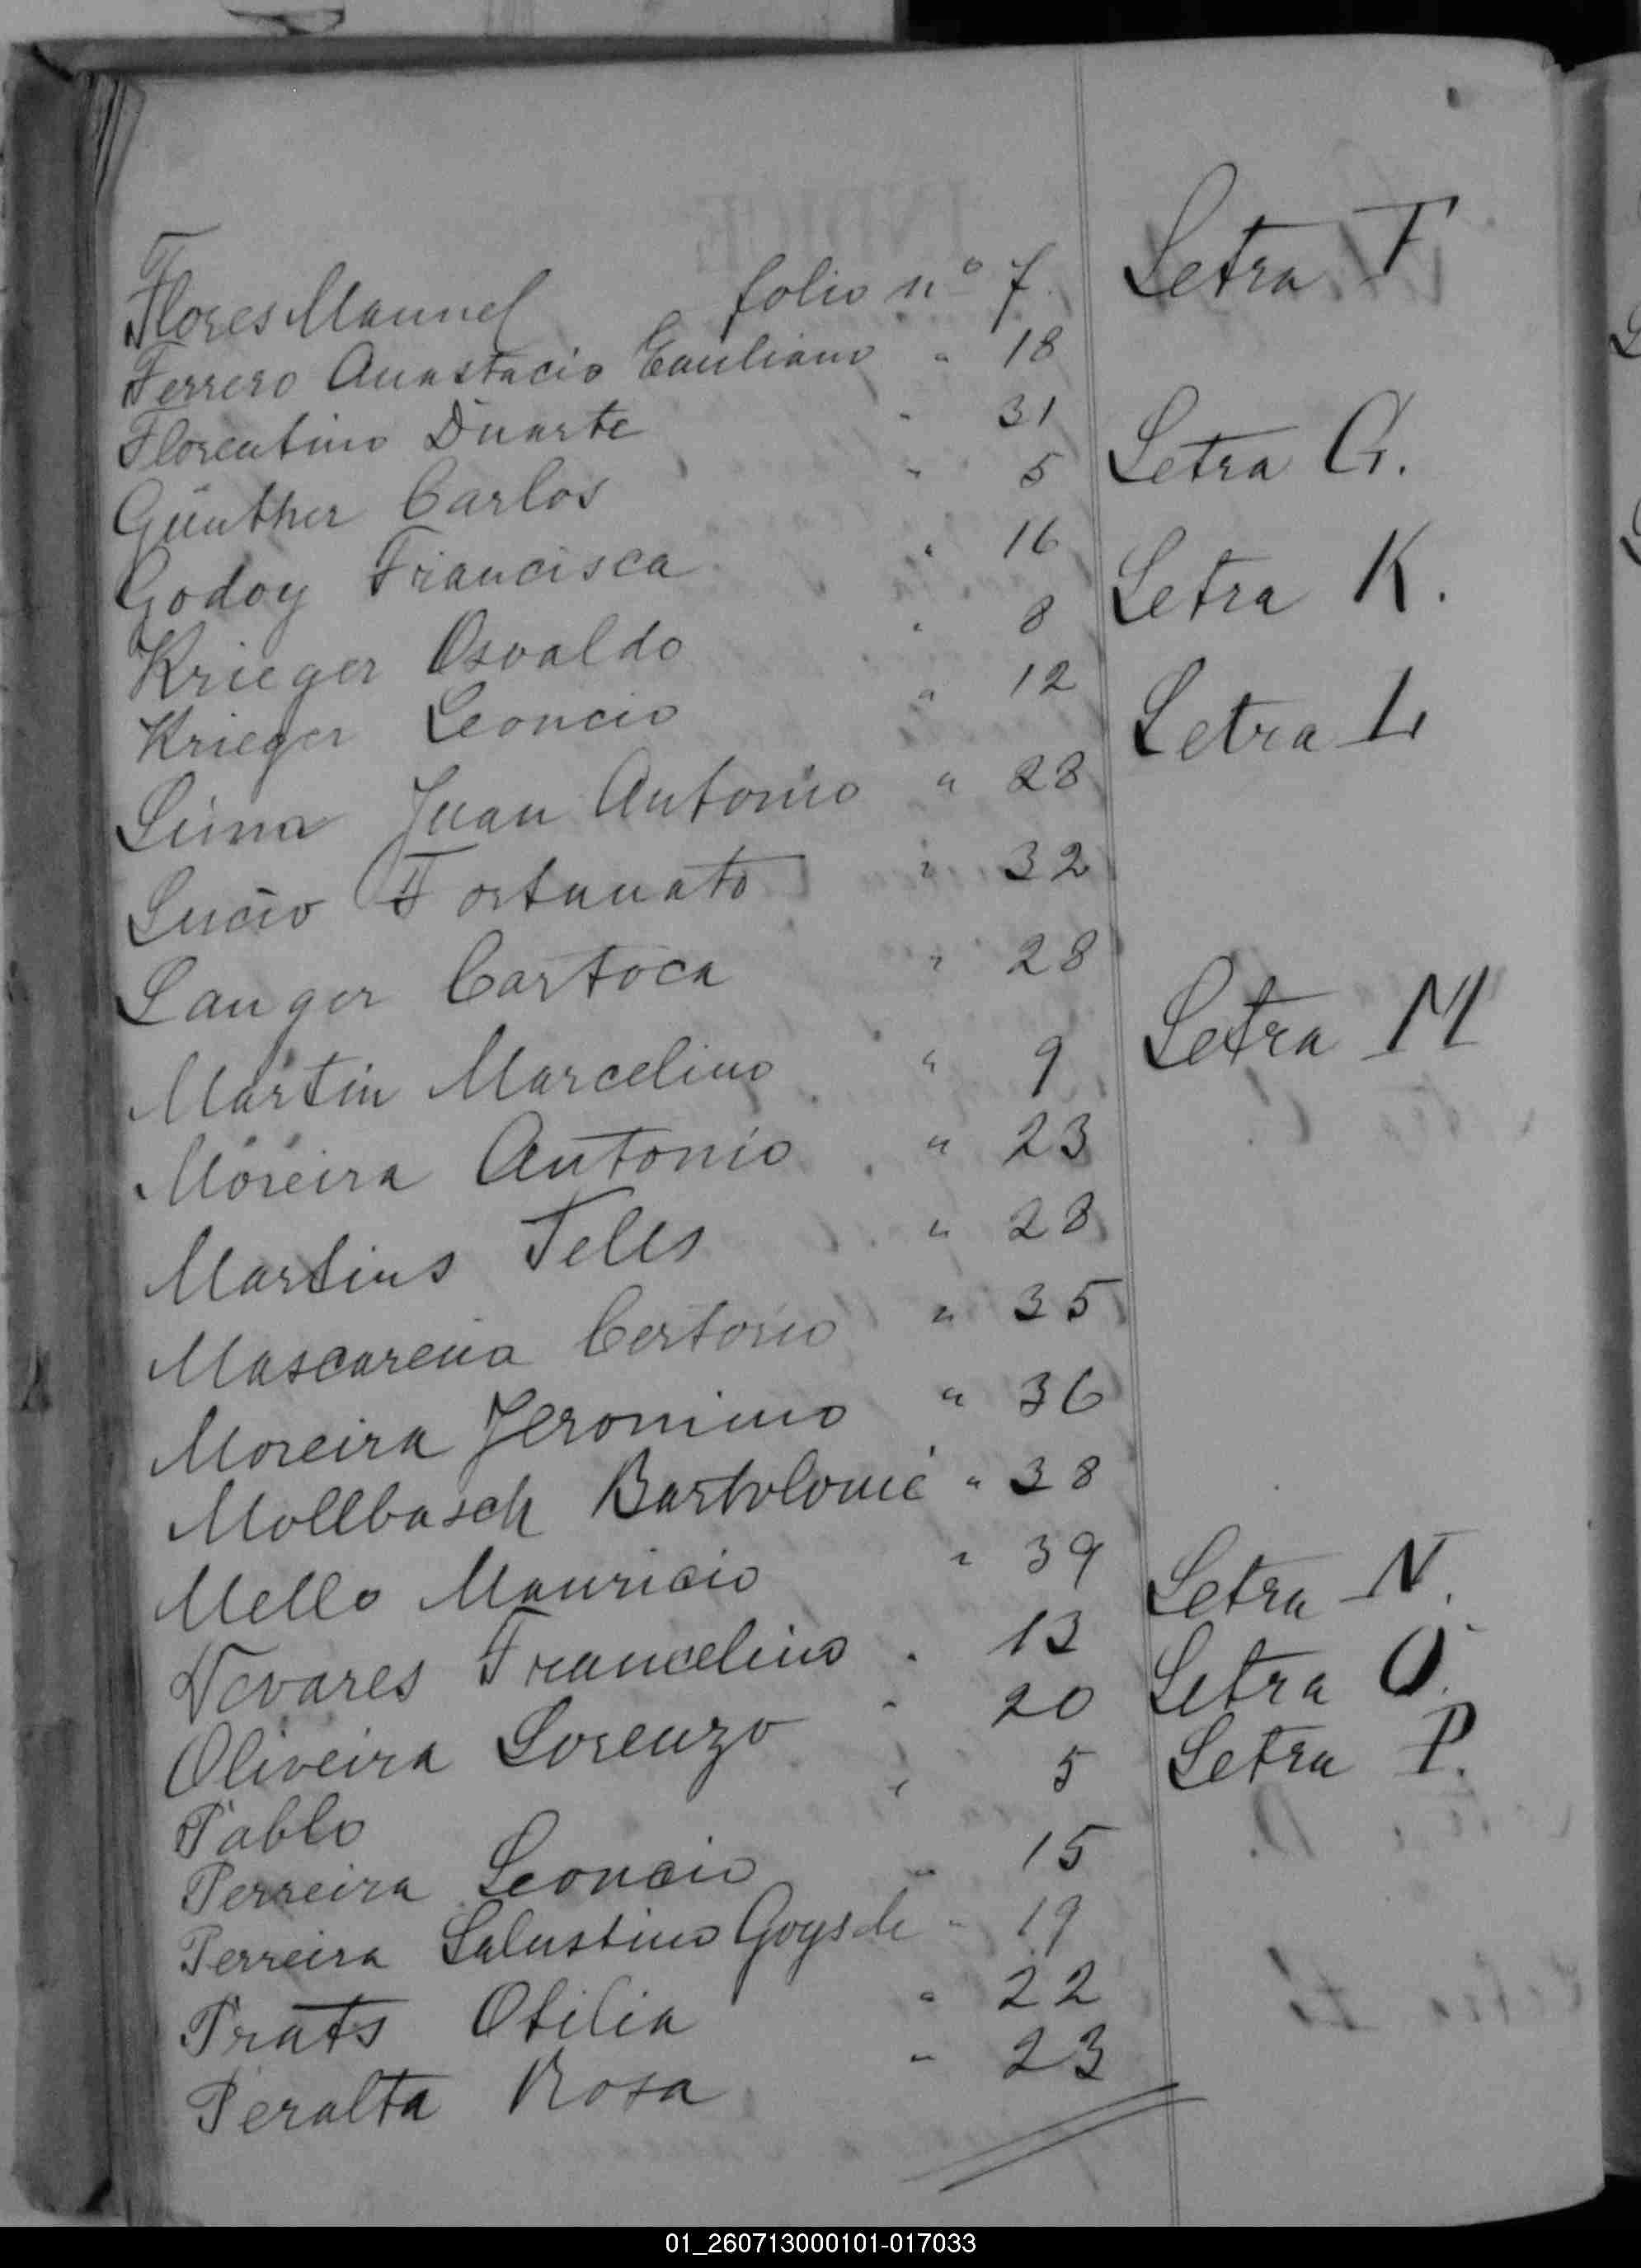 Letra F
Flores Manuel folio nº 7.
Ferrero Anastacio Emiliano " 18
Florentino Duarte " 31
Letra G.
Günther Carlos " 5
Godoy Francisca " 16
Letra K.
Krieger Osvaldo " 8
Krieger Leoncio " 12
Letra L
Lima Juan Antonio " 28
Lucio Fortunato " 32
Langer Cartoca " 28
Letra M
Martin Marcelino " 9
Moreira Antonio " 23
Martins Teles " 28
Mascarena Certorio " 35
Moreira Jeronimo " 36
Mollbasch Bartolomé " 38
Mello Mauricio " 39
Letra N.
Nevares Francelino " 13
Letra O.
Oliveira Lorenzo " 20
Letra P.
Pablo " 5
Perreira Leoncio " 15
Perreira Salustino Goys de " 19
Prats Otilia " 22
Peralta Rosa " 23
01_260713000101-017033